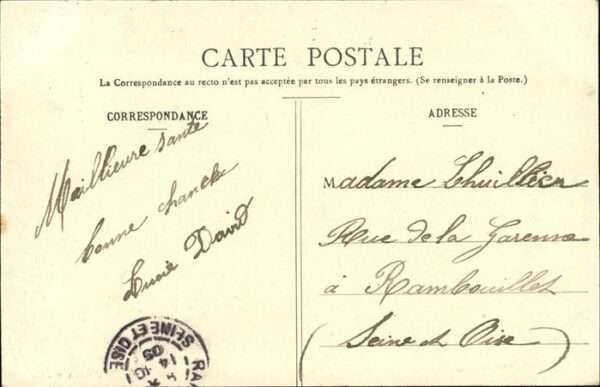 CARTE POSTALE
La Correspondance au recto n'est pas acceptée par tous les pays étrangers. (Se renseigner à la Poste.)
CORRESPONDANCE
Meillieure santé
bonne chance
Lucie David
ADRESSE
Madame Lhuillier
Rue de la Garenne
à Rambouillet
(Seine et Oise)
RA
SEINE ET OISE
14
05